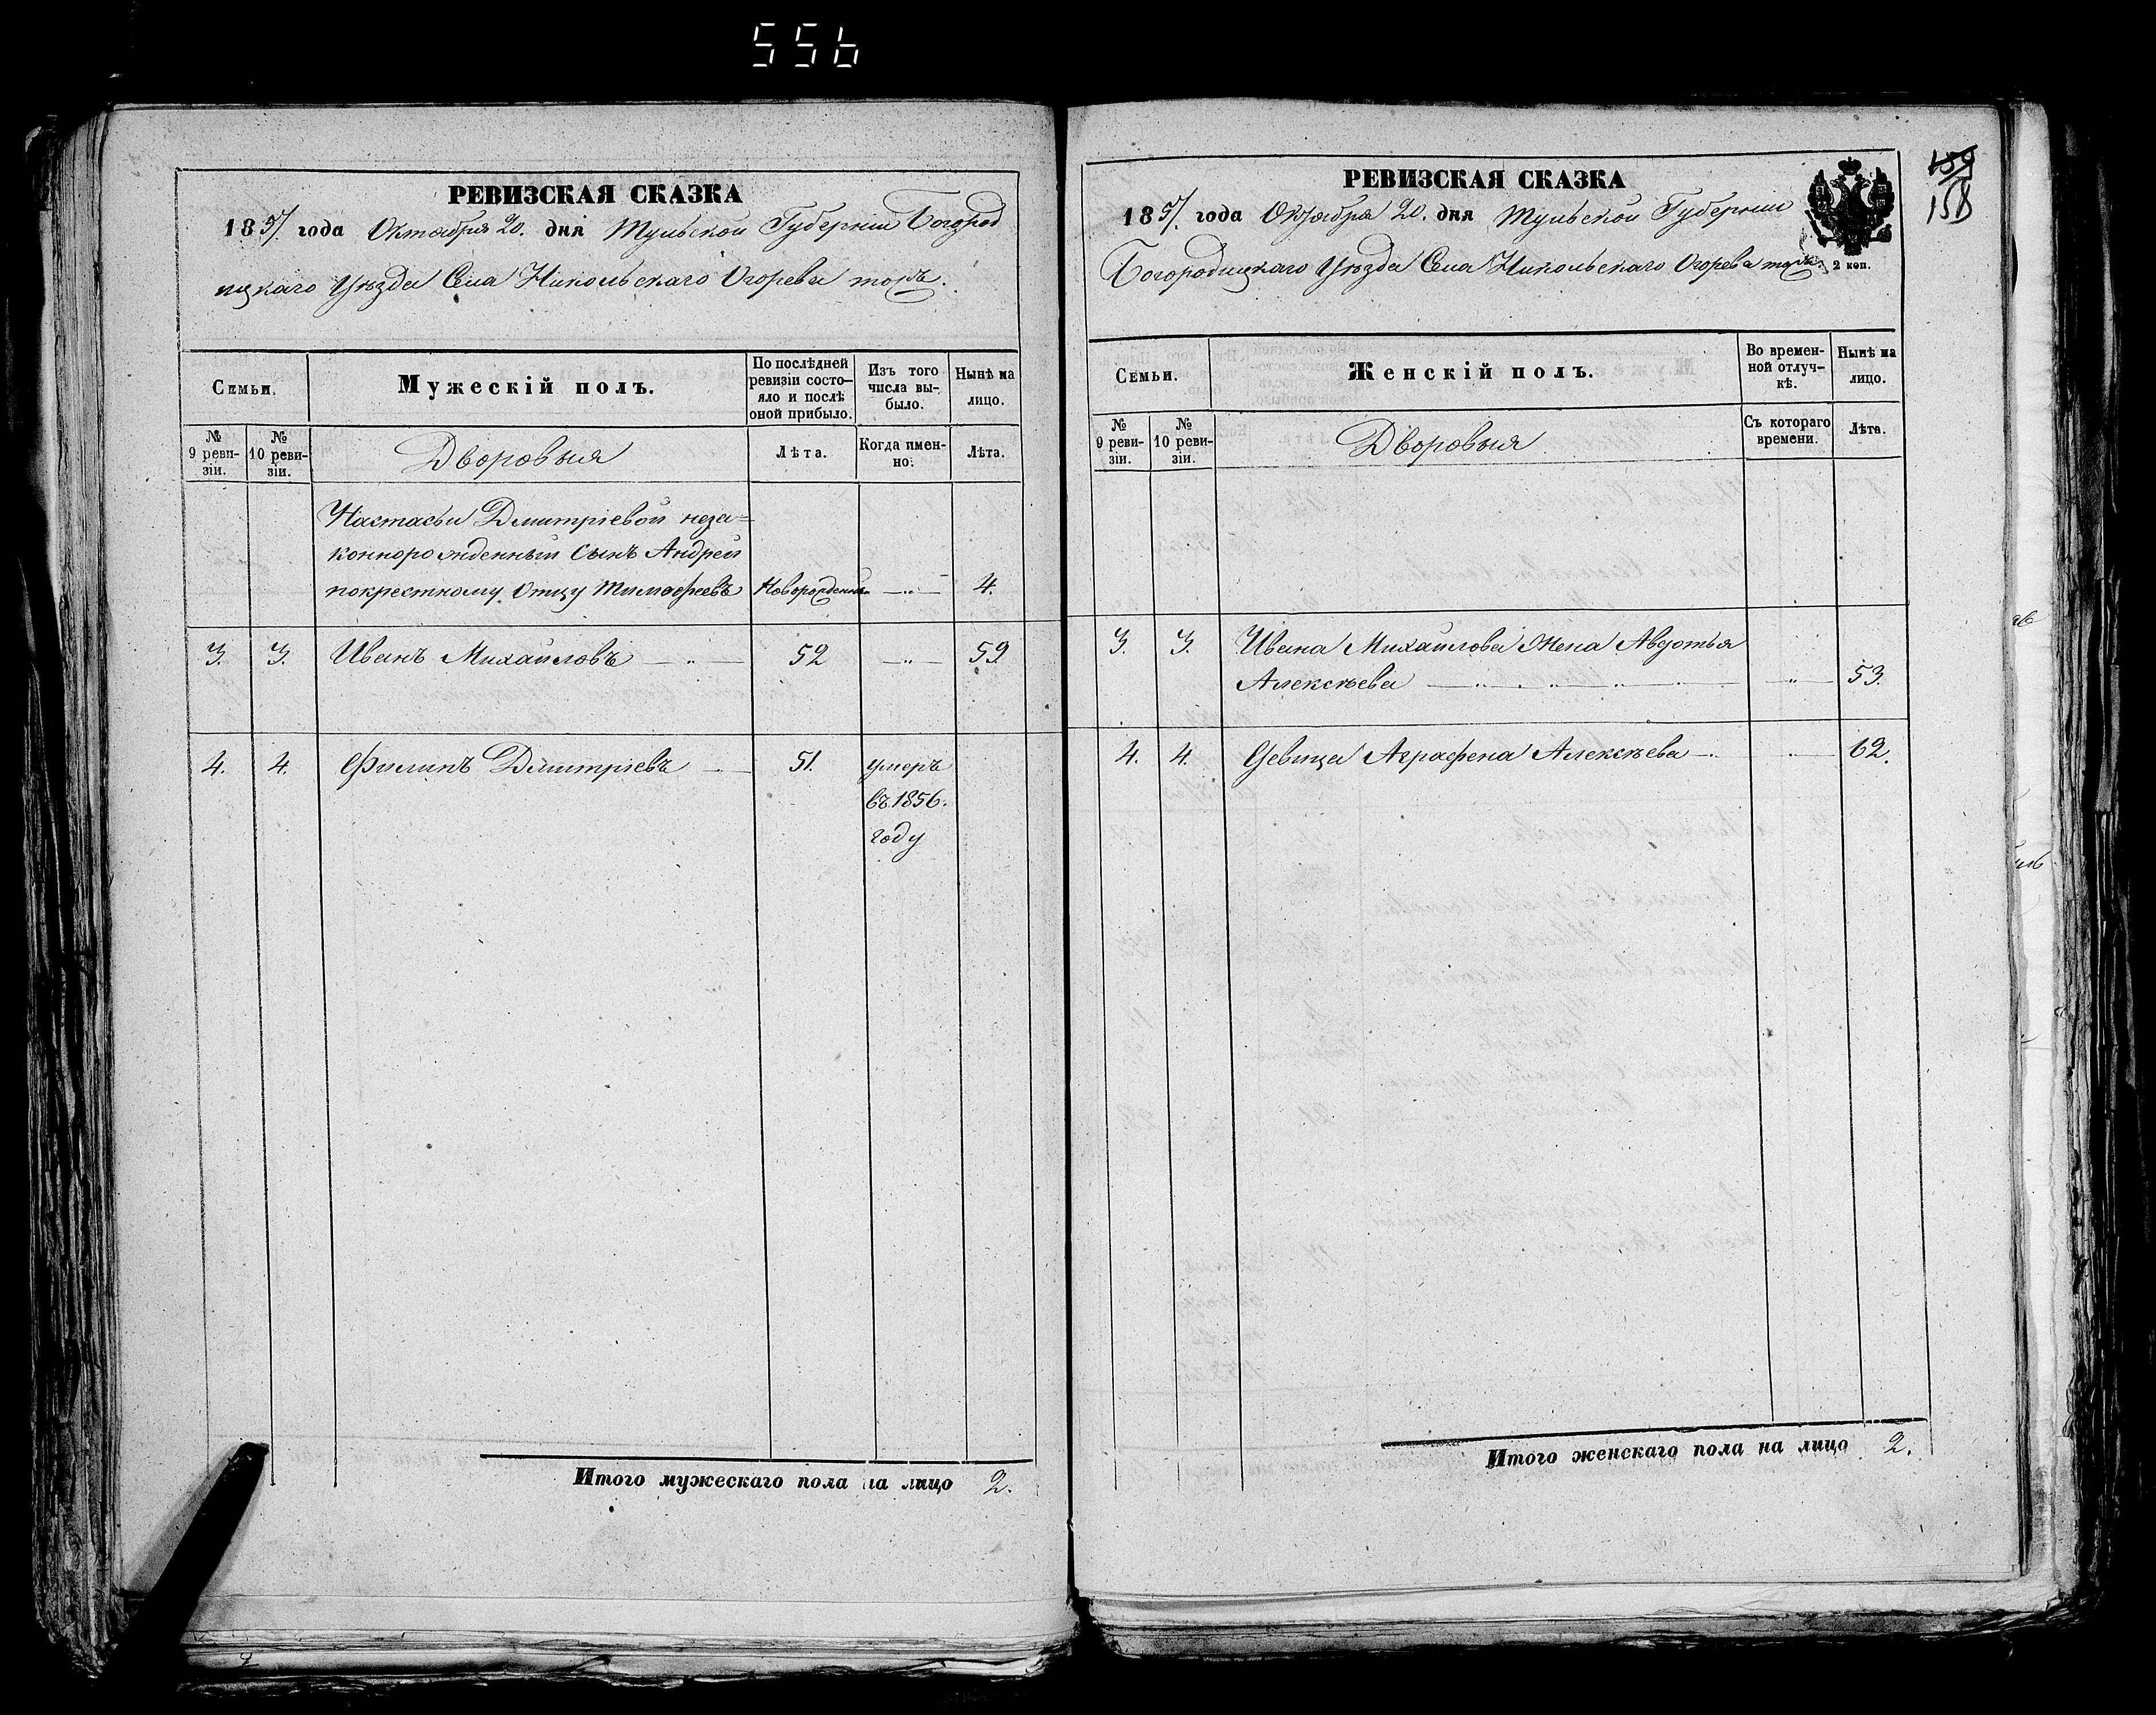 556
РЕВИЗСКАЯ СКАЗКА
1857. года Октября 20. дня Тульской Губернии Богород
ицкаго Уѣзда Села Никольскаго Огорева тожъ.
Семьи.
Мужескій полъ.
По послѣдней ревизіи состо-
яло и послѣ оной прибыло.
Изъ того числа вы-
было.
Нынѣ на лицо.
№ 9 реви-
зіи.
№ 10 реви-
зіи.
Дворовыя
Лѣта.
Когда имен-
но.
Лѣта.
Настасьи Дмитріевой неза=
коннорожденный сынъ Андрей
покрестному Отцу Тимофеевъ Новорожденный —„— 4.
3. 3. Иванъ Михайловъ — „ — 52 —„— 59
4. 4. Филипъ Дмитріевъ — 51. умеръ
въ 1856.
году
Итого мужескаго пола на лицо 2.
РЕВИЗСКАЯ СКАЗКА
1857. года Октября 20. дня Тульской Губернии
Богородицкаго Уѣзда Села Никольскаго Огорева тожъ.
2 коп.
159
158
Семьи.
Женскій полъ.
Во времен-
ной отлуч-
кѣ.
Нынѣ на лицо.
№ 9 реви-
зіи.
№ 10 реви-
зіи.
Дворовыя
Съ котораго времени.
Лѣта.
3. 3. Ивана Михайлова Жена Авдотья
Алексѣева — „ — „ — „ — —„— 53.
4. 4. Девица Аграфена Алексѣева —. —„— 62.
Итого женскаго пола на лицо 2.